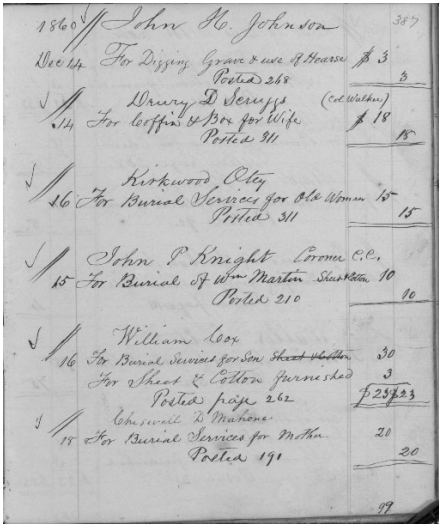 387
1860 // John H. Johnson
Dec 14 For Digging Grave & use of Hearse $ 3
Posted 268 3
Drury D Scruggs (Col Walker)
14 For Coffin & Box for Wife $ 18
Posted 311 18
Kirkwood Otey
16 For Burial Services for Old Woman 15
Posted 311 15
John P Knight Coroner C.C.
15 For Burial of Wm Martin Sheet & Cotton 10
Posted 210 10
William Cox
16 For Burial Services for Son Sheet & Cotton 30
For Sheet & Cotton furnished 3
Posted page 262 $23 $23
D Mahone
18 For Burial Services for Mother 20
Posted 191 20
99